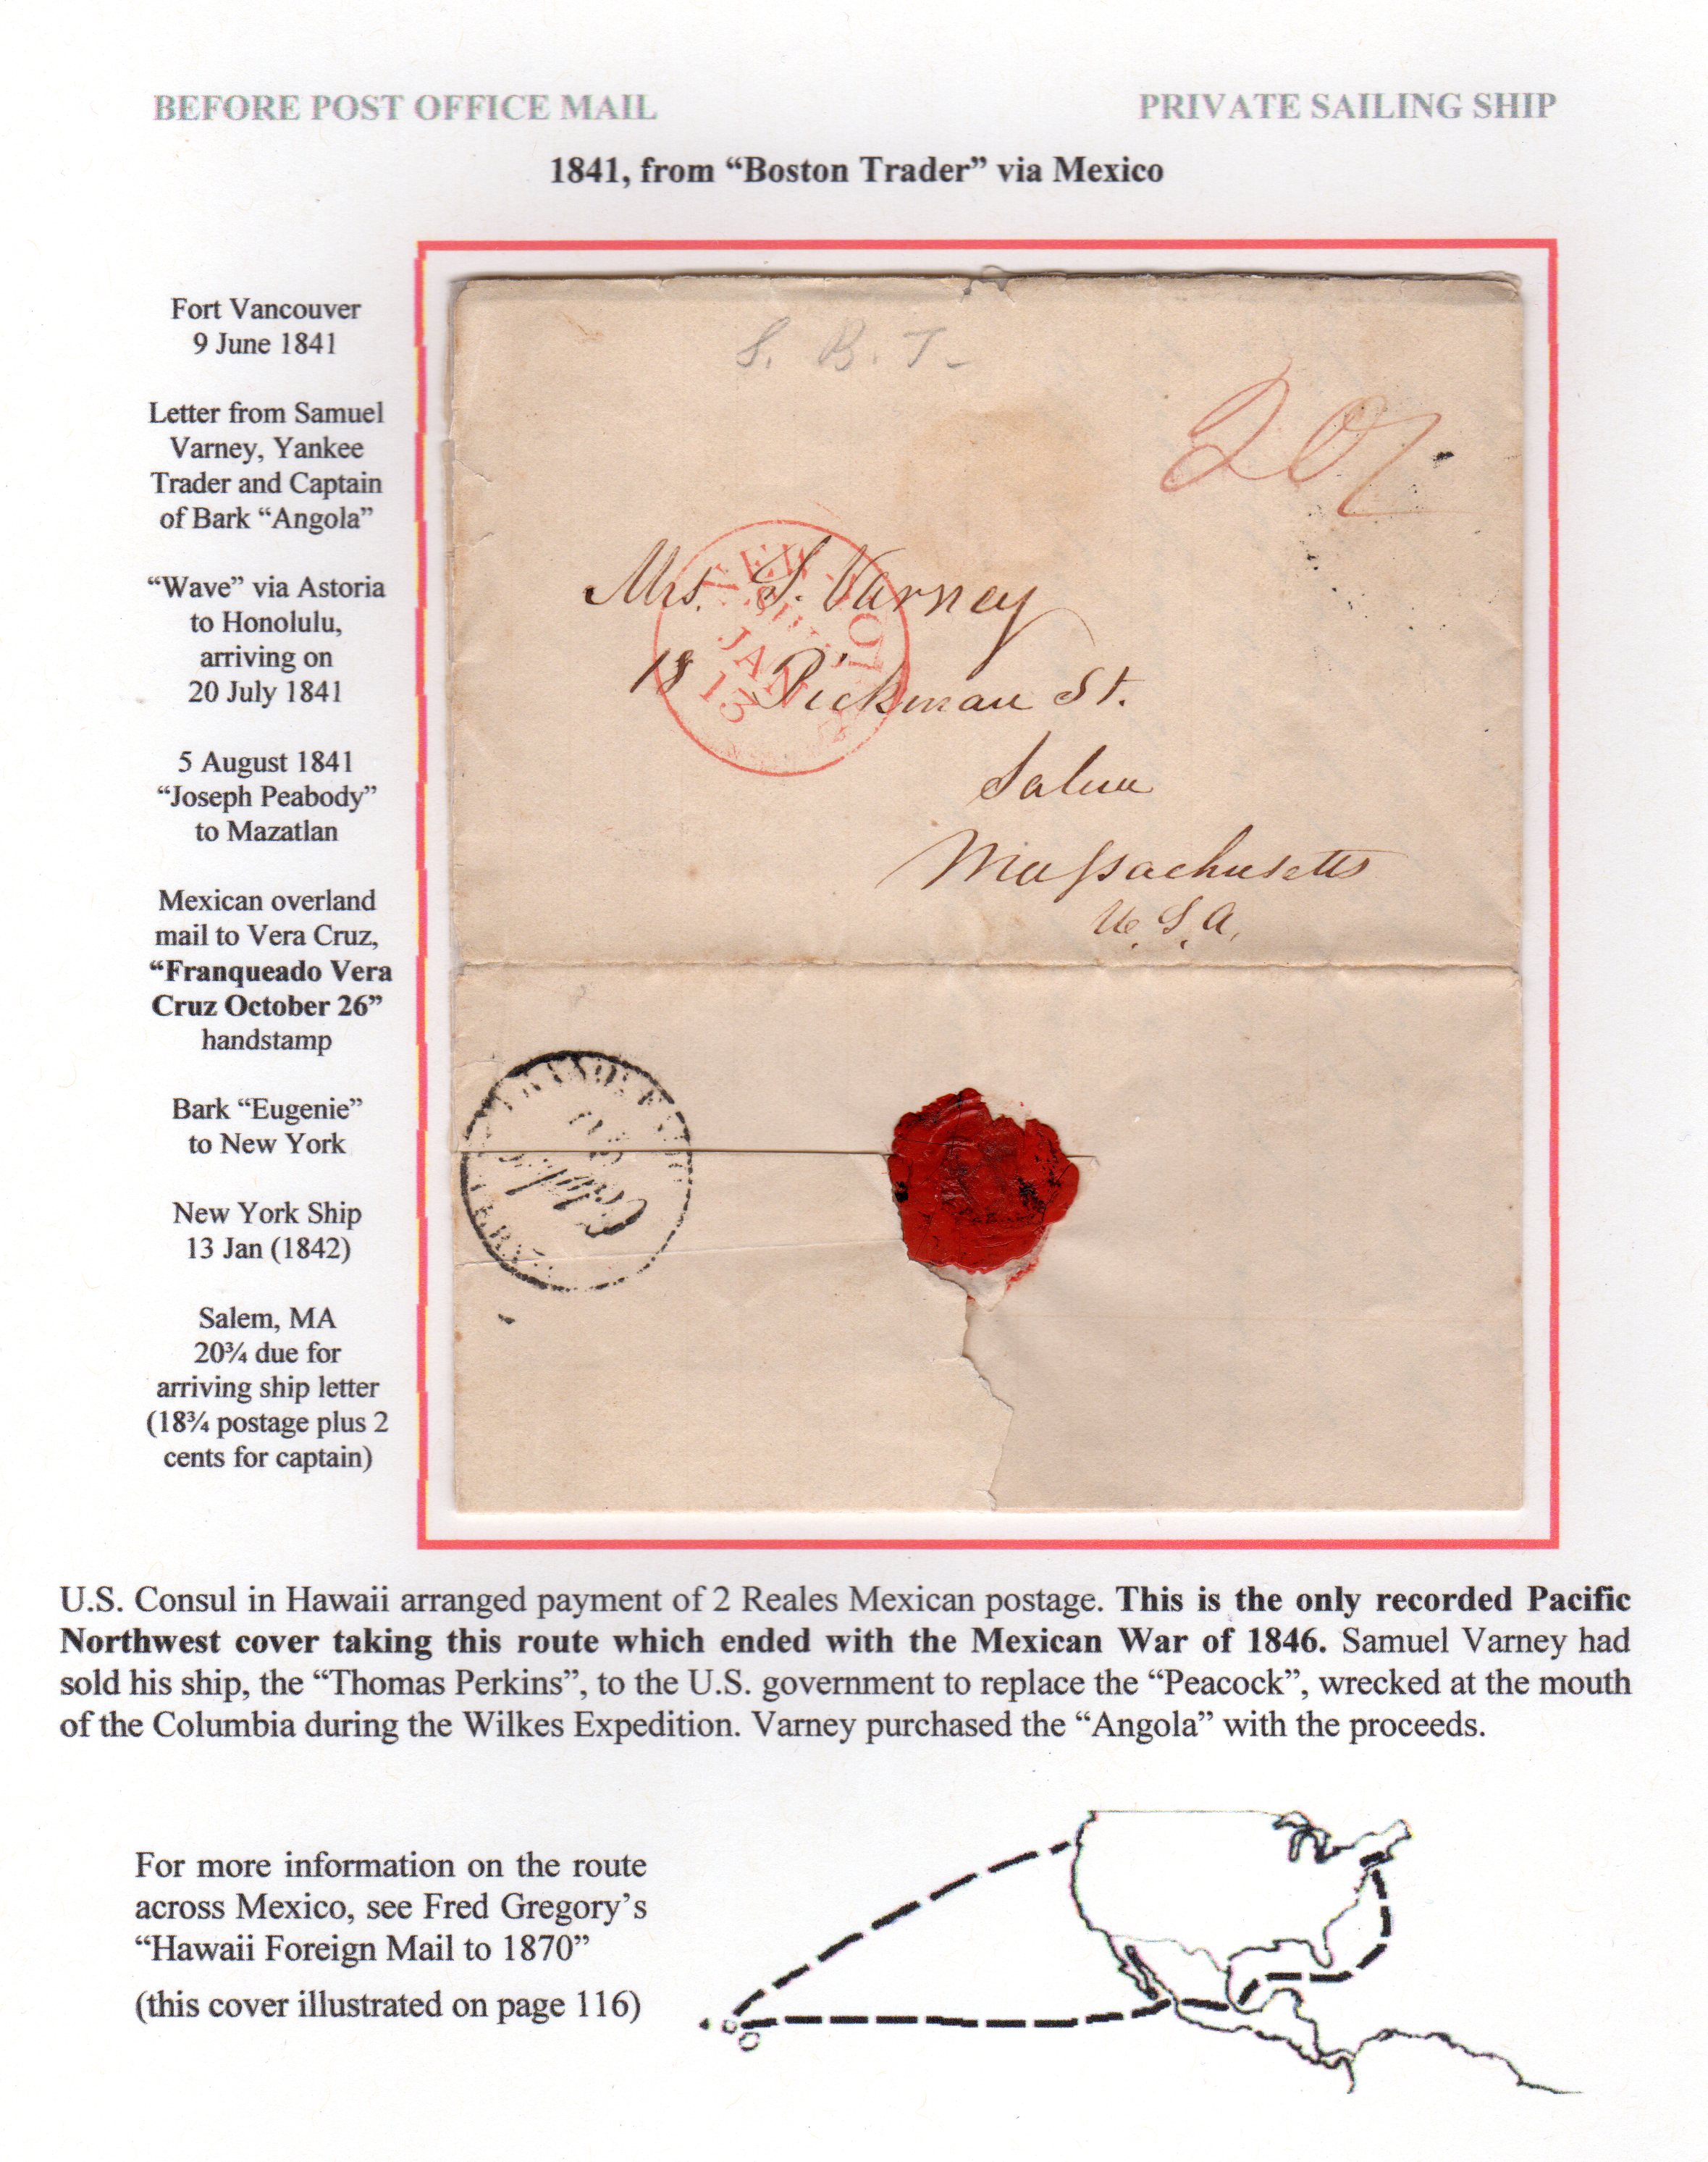 BEFORE POST OFFICE MAIL
PRIVATE SAILING SHIP
1841, from “Boston Trader” via Mexico
Fort Vancouver
9 June 1841
Letter from Samuel
Varney, Yankee
Trader and Captain
of Bark “Angola”
“Wave” via Astoria
to Honolulu,
arriving on
20 July 1841
5 August 1841
“Joseph Peabody”
to Mazatlan
Mexican overland
mail to Vera Cruz,
“Franqueado Vera
Cruz October 26”
handstamp
Bark “Eugenie”
to New York
New York Ship
13 Jan (1842)
Salem, MA
20¾ due for
arriving ship letter
(18¾ postage plus 2
cents for captain)
S. B. T-
NEW-YORK
SHIP
JAN
13
Mrs. S. Varney
18 Pickman St.
Salem
Massachusetts
U.S.A.
U.S. Consul in Hawaii arranged payment of 2 Reales Mexican postage. This is the only recorded Pacific
Northwest cover taking this route which ended with the Mexican War of 1846. Samuel Varney had
sold his ship, the “Thomas Perkins”, to the U.S. government to replace the “Peacock”, wrecked at the mouth
of the Columbia during the Wilkes Expedition. Varney purchased the “Angola” with the proceeds.
For more information on the route
across Mexico, see Fred Gregory’s
“Hawaii Foreign Mail to 1870”
(this cover illustrated on page 116)